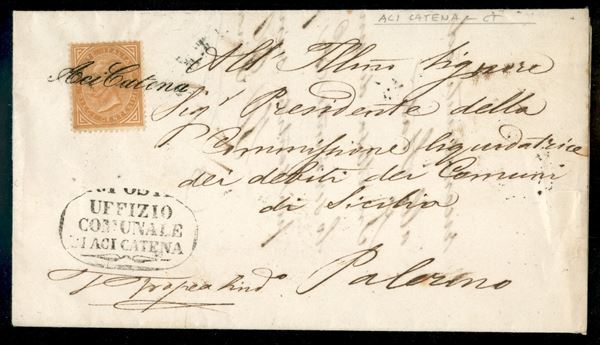 ACI CATENA
Aci Catena
All' Illmo Signore
Sigr Presidente della
Commissione liquidatrice
dei debiti dei Comuni
di Sicilia
UFFIZIO
COMUNALE
DI ACI CATENA
Palermo